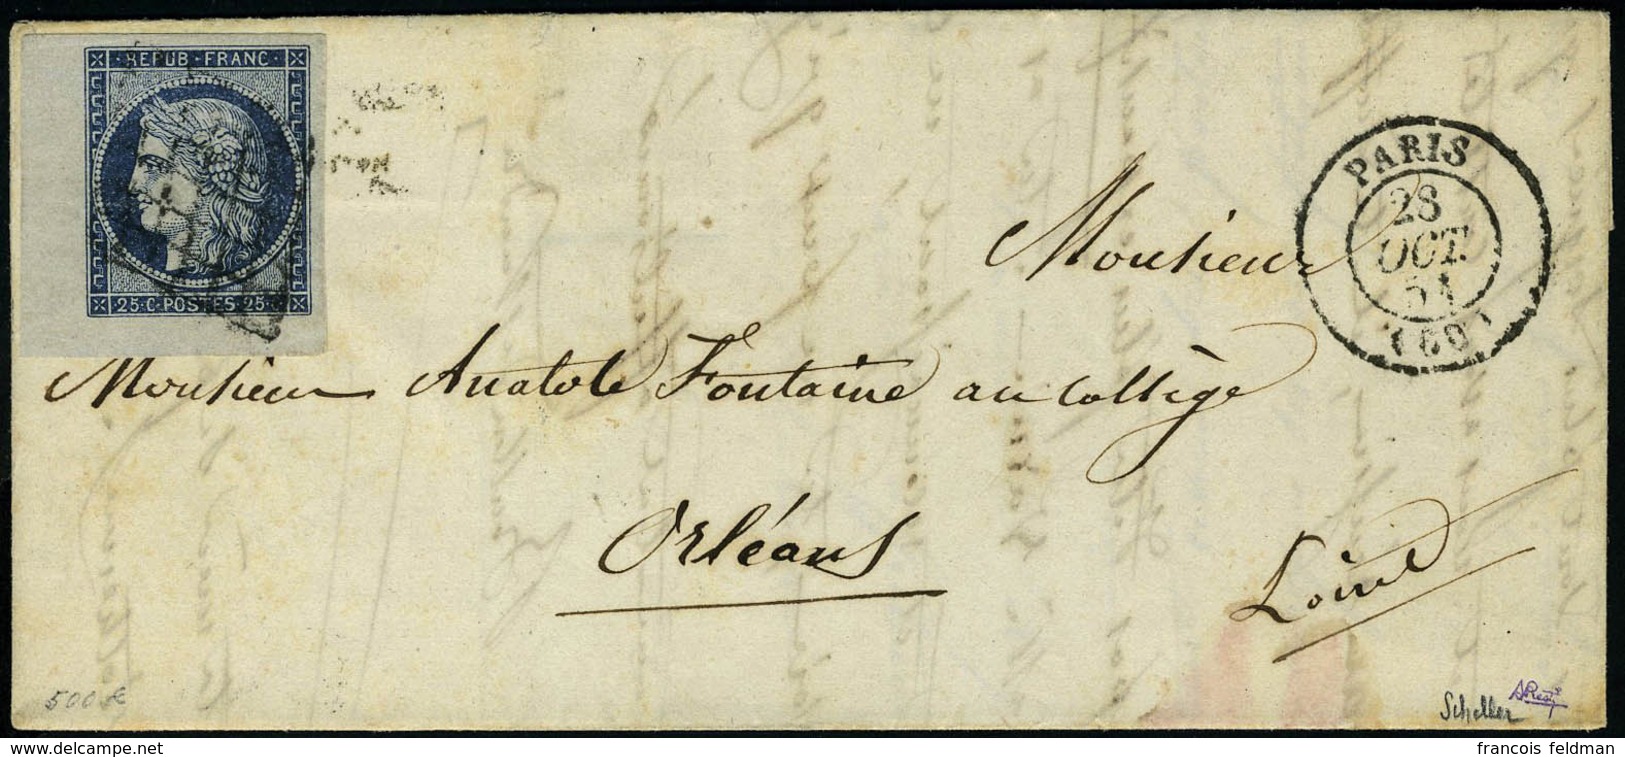 REPUB·FRANC·
25·C·POSTES·25·C
PARIS
28
OCT.
51
(60)
Monsieur
Monsieur Anatole Fontaine au collège
Orléans
Loiret
500 €
Scheller
francois feldman